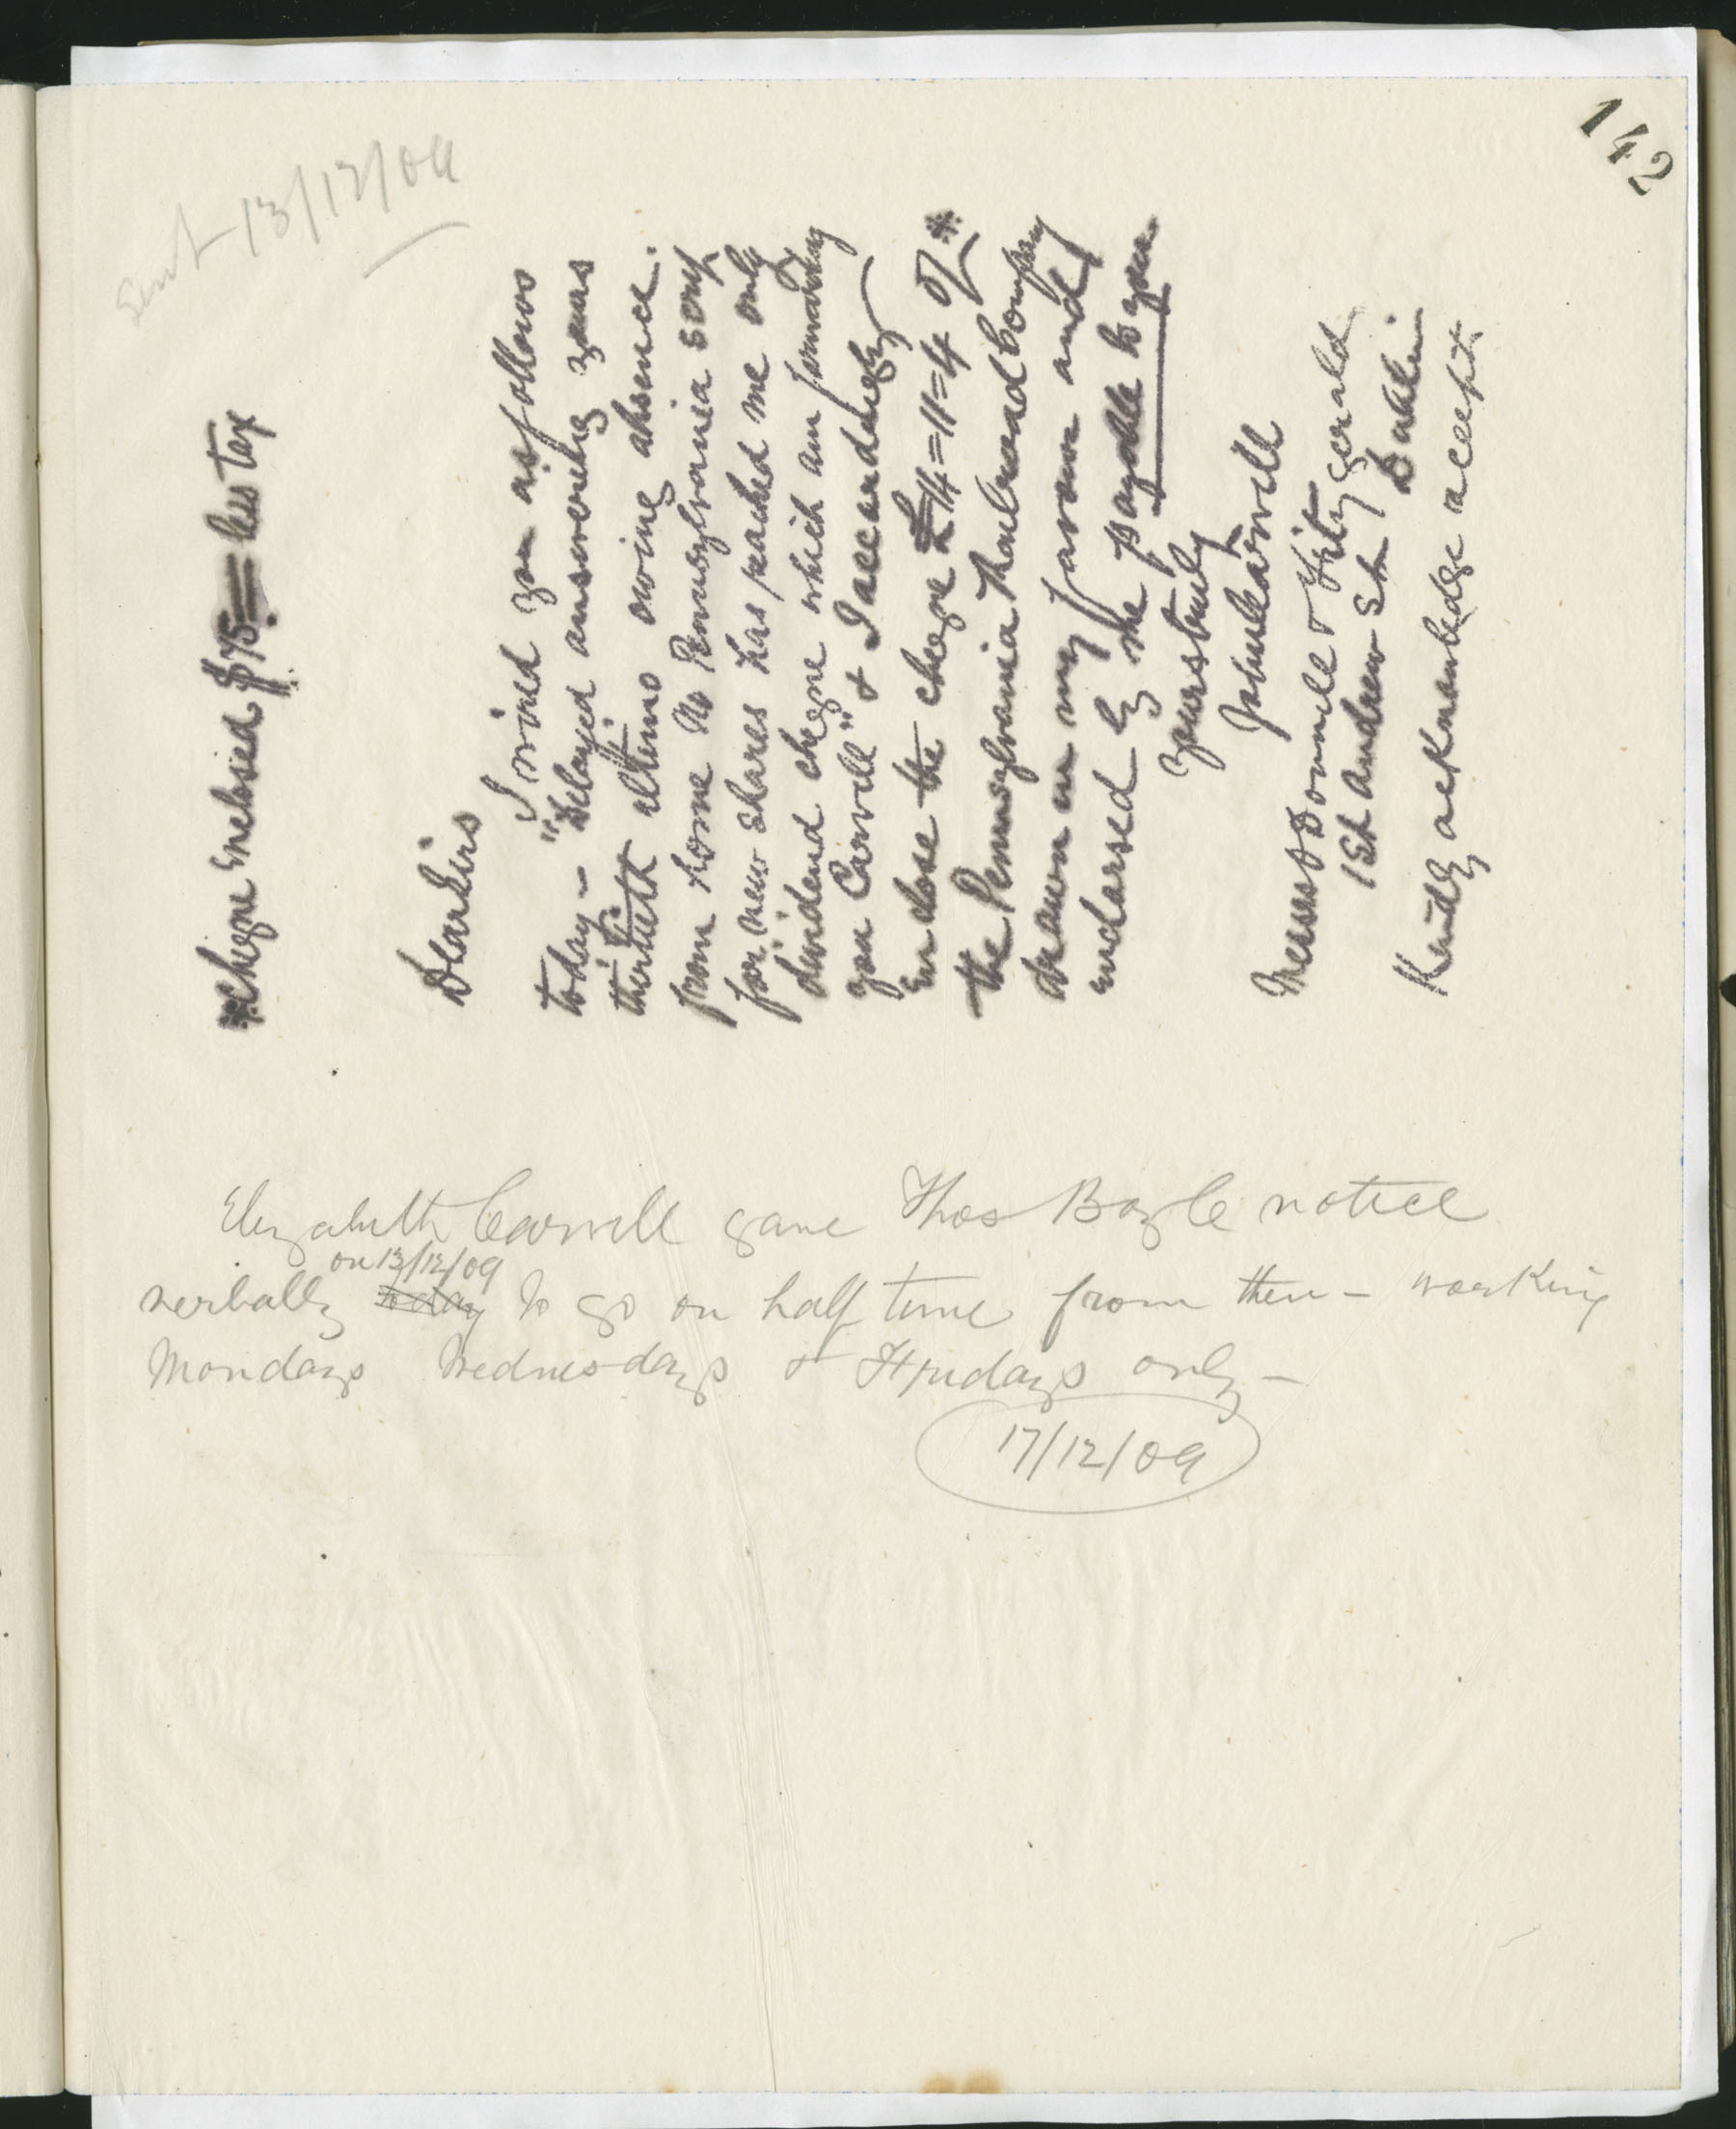 142
Sent 13/12/09
*Cheque Enclosed $75 = less tax
Dear Sirs
I wired you as follows
today - "Delayed answering yours
thirtieth ultimo owing absence
from home No Pennsylvania scrip
for new shares has reached me only
dividend cheque which am forwarding
you Carvill" & I accordingly
enclose the cheque £14=11=4 of *
the Pennsylvania Railroad Company
drawn in my favour and
endorsed by me payable to you.
Yours truly
Messrs Donnell & Fitzgerald
St Andrew St Dublin
Kindly acknowledge receipt.
Elizabeth Carvill gave Thos Boyle notice
on 13/12/09
verbally today to go on half time from then - working
Mondays Wednesdays & Fridays only -
17/12/09